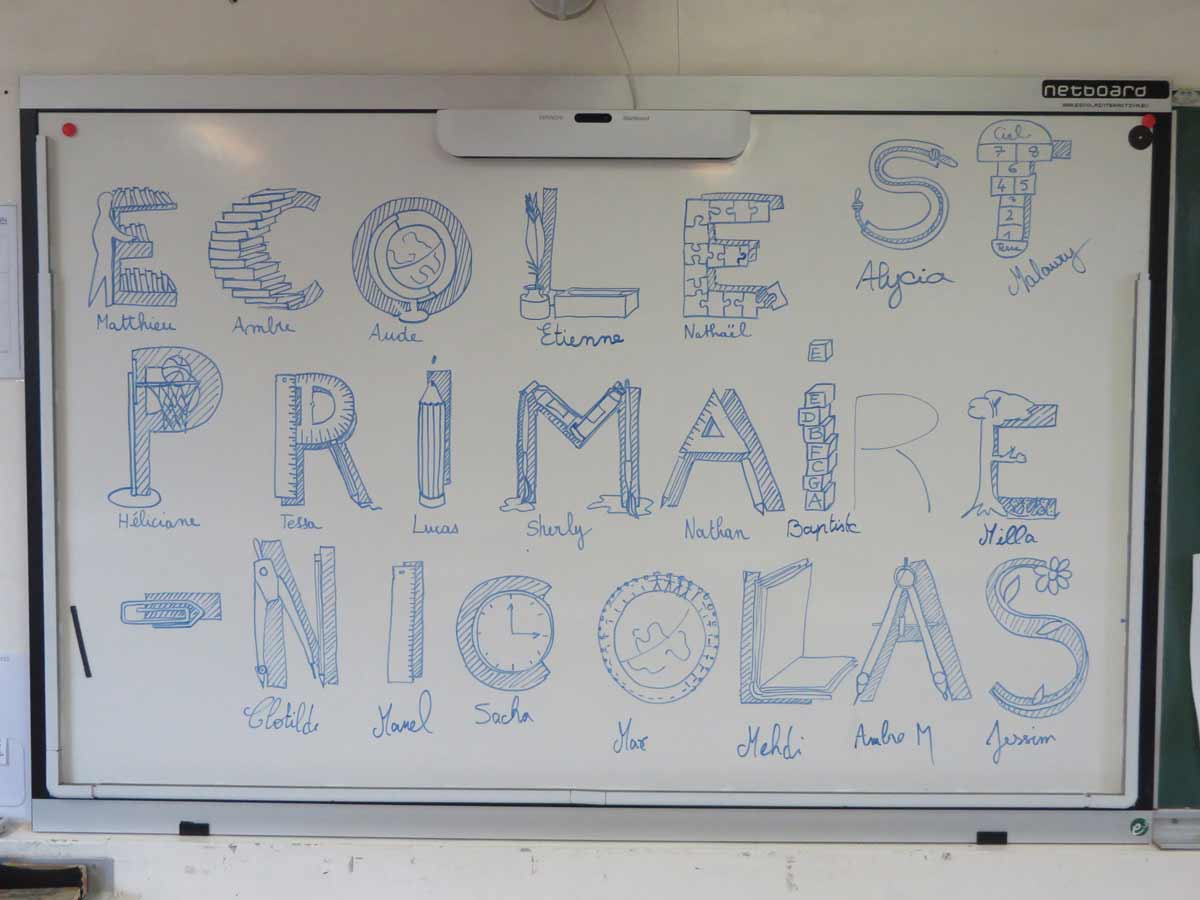 netboard
ECOLE ST
Ciel
7 8
6
4 5
3
2
1
Terre
Matthieu Ambre Aude Etienne Nathaël Alycia Malaury
PRIMAIRE
E
E
D
B
F
C
G
A
Héliciane Tessa Lucas Sherly Nathan Baptiste Milla
-NICOLAS
Clotilde Manel Sacha Max Mehdi Ambre M Jessim